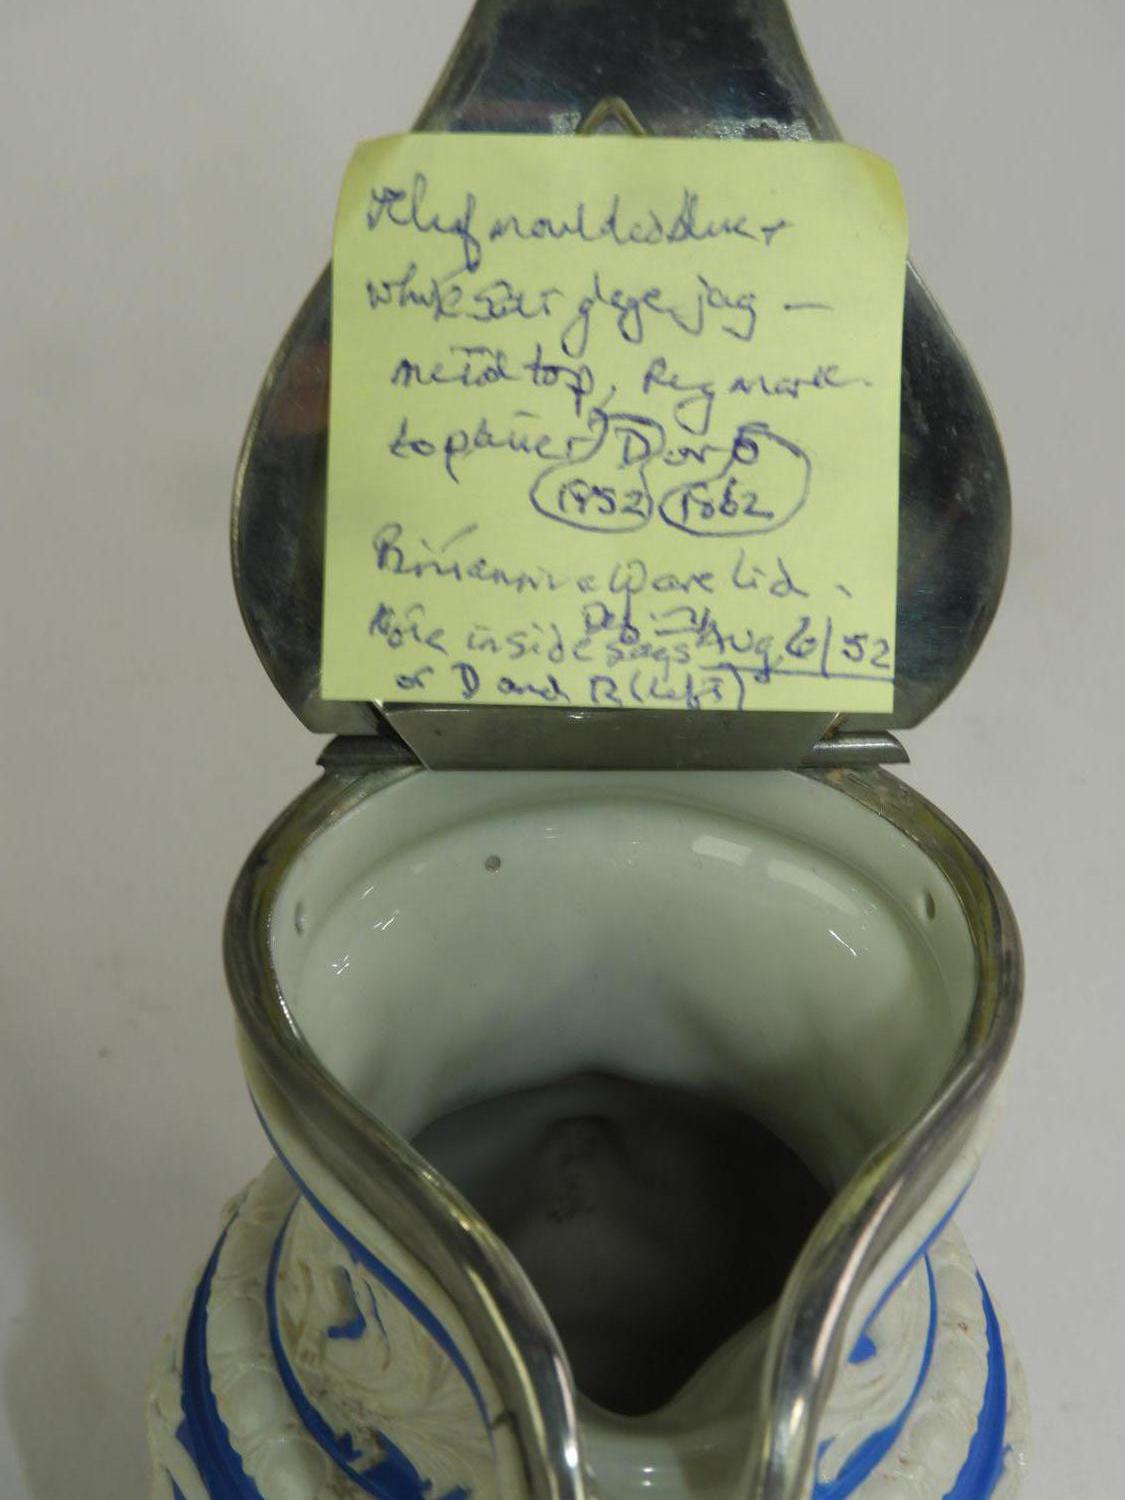 Relief moulded blue +
white salt glaze jug —
metal top, Reg mark.
to planter? D or 6
1852 1862
Britannia Ware Lid.
Note inside says Aug 6/52
or D and R (left)